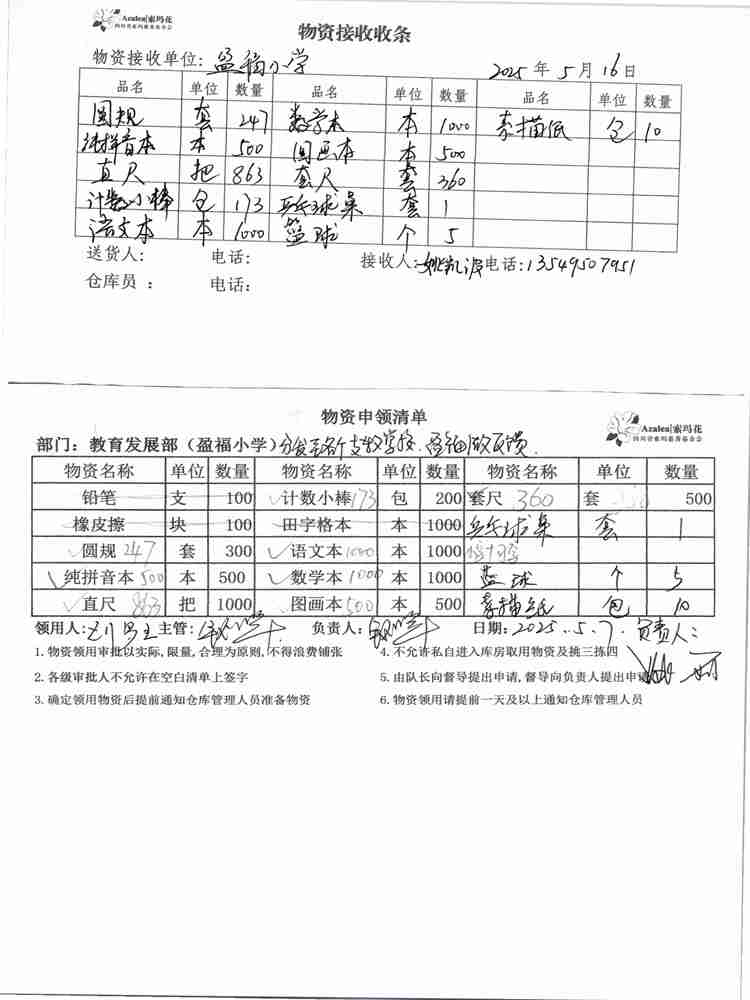 Azalea|索玛花
四川省索玛慈善基金会
物资接收收条
物资接收单位: 盈福小学 2025 年 5 月 16 日
品名 单位 数量 品名 单位 数量 品名 单位 数量
圆规 套 247 数学本 本 1000 素描纸 包 10
纯拼音本 本 500 图画本 本 500
直尺 把 863 套尺 套 360
计数小棒 包 173 乒乓球桌 套 1
语文本 本 1000 篮球 个 5
送货人: 电话: 接收人: 电话: 13549507951
仓库员 : 电话:
物资申领清单
Azalea|索玛花
四川省索玛慈善基金会
部门: 教育发展部 (盈福小学) 分发至各个支教学校.
物资名称 单位 数量 物资名称 单位 数量 物资名称 单位 数量
铅笔 支 100 ✓计数小棒 173 包 200 套尺 360 套 500
橡皮擦 块 100 田字格本 本 1000 乒乓球桌 套 1
✓圆规 247 套 300 ✓语文本 1000 本 1000
✓纯拼音本 500 本 500 ✓数学本 1000 本 1000 篮球 个 5
✓直尺 863 把 1000 图画本 500 本 500 素描纸 包 10
领用人: 主管: 负责人: 日期: 2025..5.7. 负责人:
1. 物资领用审批以实际, 限量, 合理为原则, 不得浪费铺张
4. 不允许私自进入库房取用物资及挑三拣四
2. 各级审批人不允许在空白清单上签字
5. 由队长向督导提出申请, 督导向负责人提出申
3. 确定领用物资后提前通知仓库管理人员准备物资
6. 物资领用请提前一天及以上通知仓库管理人员